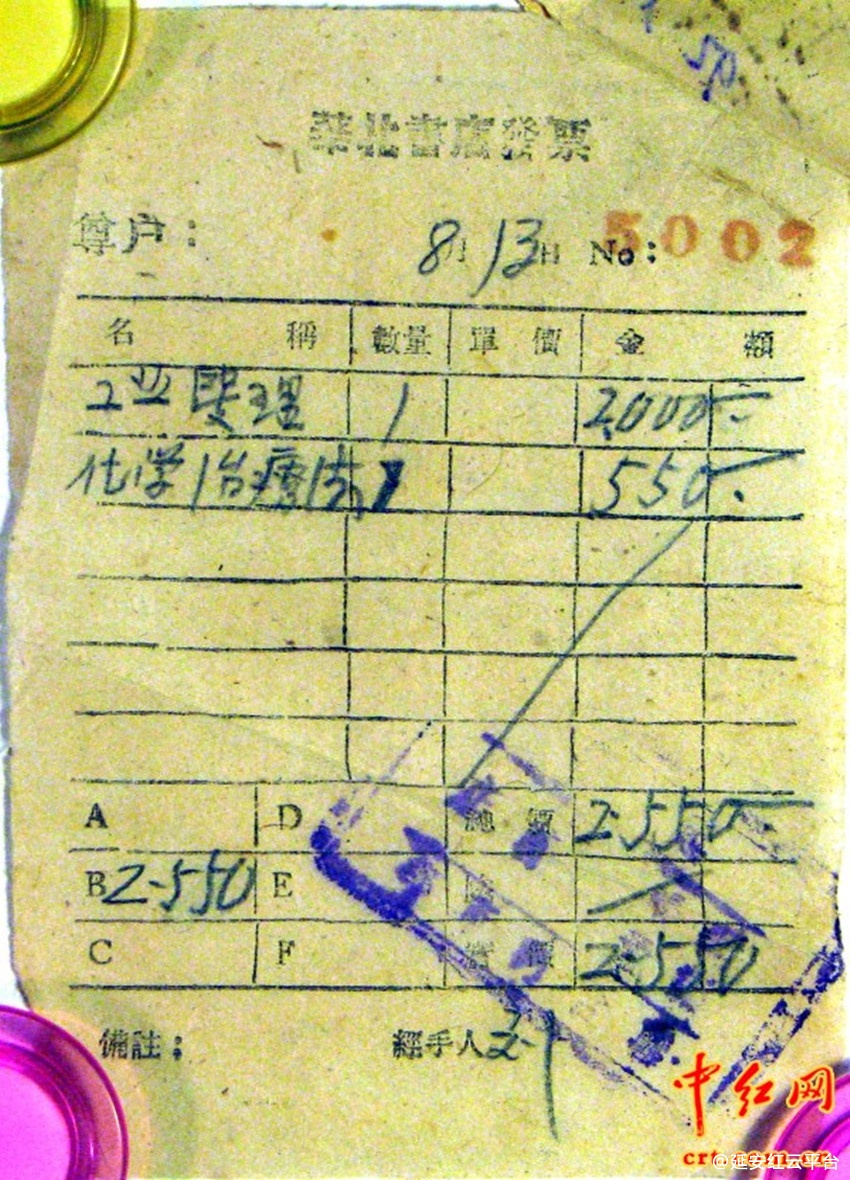 50
華北書店發票
尊户：
8月13日 No：5002
名稱 數量 單價 金額
工业管理 1 2000-
化学治療法 1 550-
A D 總額 2550-
B 2550 E
C F 實價 2550
備註： 經手人
中红网
crt.com.cn
@延安红云平台